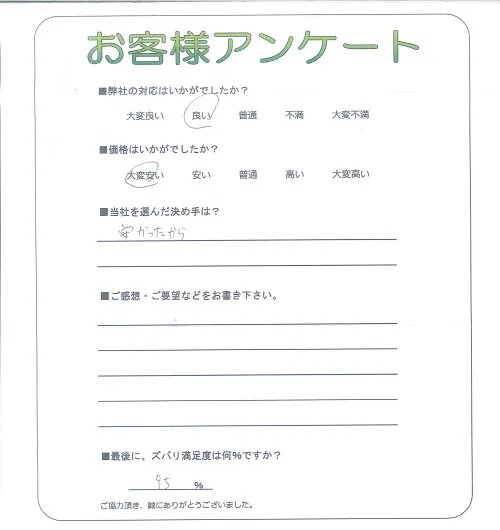 お客様アンケート
■弊社の対応はいかがでしたか？
大変良い 良い 普通 不満 大変不満
■価格はいかがでしたか？
大変安い 安い 普通 高い 大変高い
■当社を選んだ決め手は？
安かったから
■ご感想・ご要望などをお書き下さい。
■最後に、ズバリ満足度は何%ですか？
95 %
ご協力頂き、誠にありがとうございました。